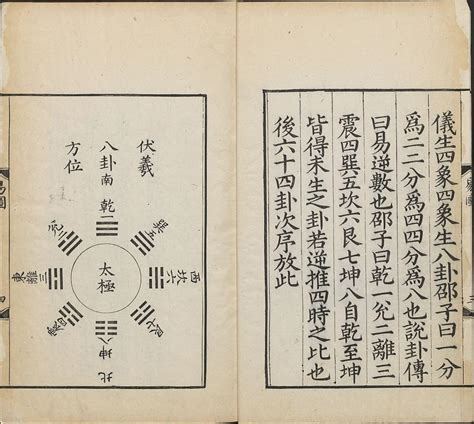 儀生四象四象生八卦邵子曰一分
爲二二分爲四四分爲八也說卦傳
曰易逆數也邵子曰乾一兌二離三
震四巽五坎六艮七坤八自乾至坤
皆得未生之卦若逆推四時之比也
後六十四卦次序放此
伏羲
八卦
方位
南
乾一
巽五
西
坎六
艮七
北
坤八
震四
東
離三
兌二
太極
易圖
四